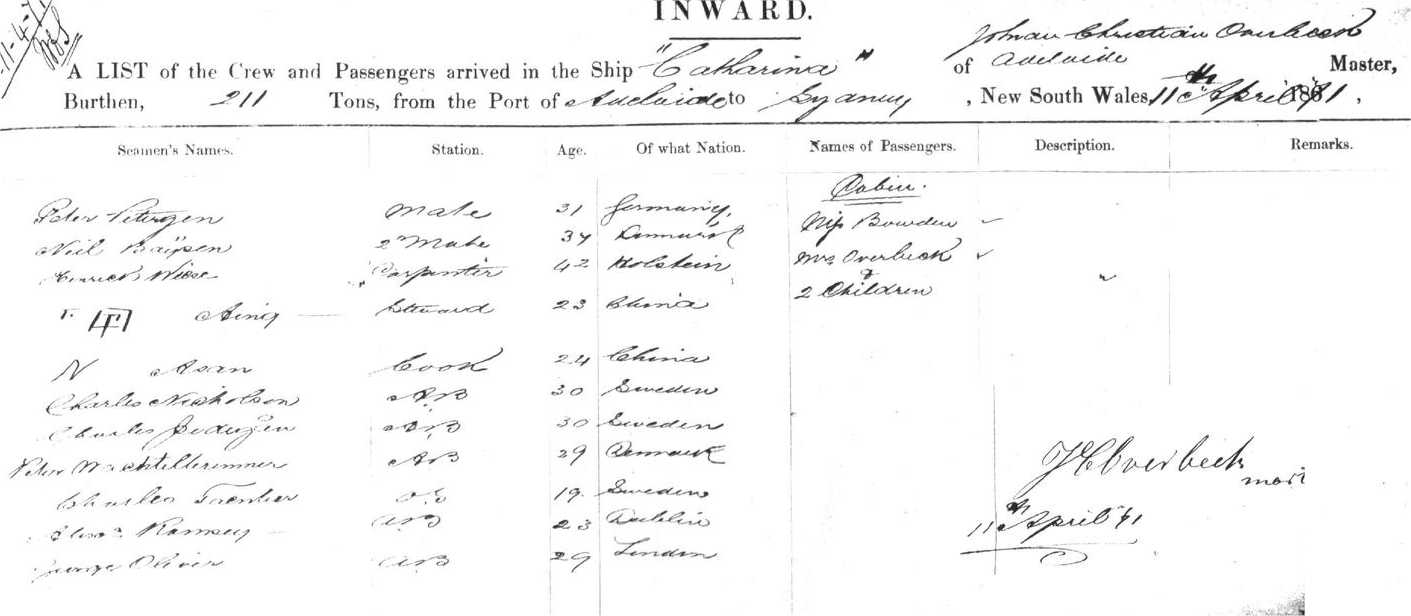 11-4-71
INWARD.
Johan Christian Overbeck
A LIST of the Crew and Passengers arrived in the Ship "Catharina" of Adelaide Master,
Burthen, 211 Tons, from the Port of Adelaide to Sydney, New South Wales, 11th April 1871,
Seamen's Names. Station. Age. Of what Nation. Names of Passengers. Description. Remarks.
Cabin.
Peter Petersen Mate 31 Germany, Miss Bowden
Neil 2d Mate 34 Denmark Mrs Overbeck
Henrick Wiese Carpenter 42 Holstein &
2 Children
Aing Steward 23 China
N Asan Cook 24 China
Charles Nicholson AB 30 Sweden
Charles AB 30 Sweden
Peter AB 29 Denmark
Charles OS 19. Sweden
Ramsey AB 23 Dublin
George Oliver AB 29 London
JC Overbeck
11th April 71